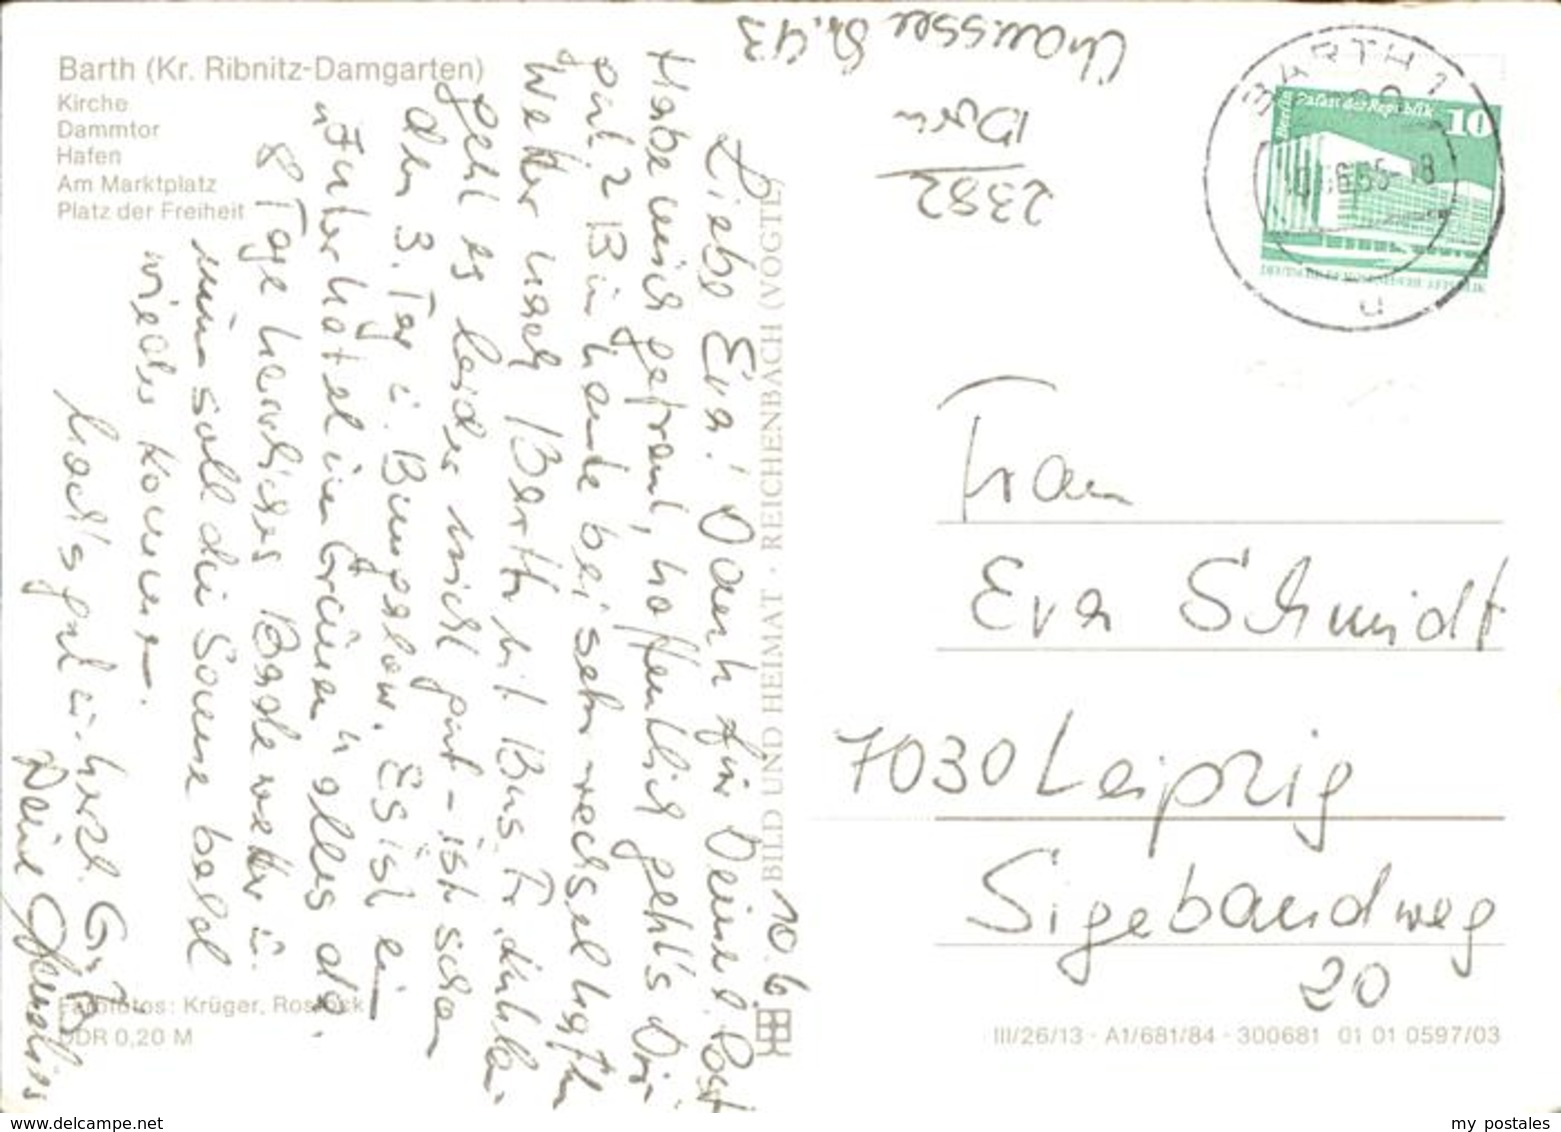 Barth (Kr. Ribnitz-Damgarten)
Kirche
Dammtor
Hafen
Am Marktplatz
Platz der Freiheit
Chaussee Str. 43
2382
10.6.
Liebe Eva! Dank für Deine l. Post
Habe mich gefreut, hoffentlich geht's Dir
gut? Bin heute bei sehr wechselhaftem
Wetter nach Barth mit Bus. Fr.
geht es leider nicht gut - ist schon
den 3. Tag i. Bungalow. Es ist ein
"Interhotel im Grünen" alles da.
8 Tage herrliches Badewetter u.
nun soll die Sonne bald
wieder kommen.
Mach's gut u. herzl. Gruß
Deine
BILD UND HEIMAT · REICHENBACH (VOGTL)
Farbfotos: Krüger, Rostock
DDR 0,20 M
BARTH 1
Berlin Palast der Republik
10
DEUTSCHE DEMOKRATISCHE REPUBLIK
Frau
Eva Schmidt
7030 Leipzig
Sigebandweg
20
III/26/13 · A1/681/84 · 300681 01 01 0597/03
www.delcampe.net
my_postales